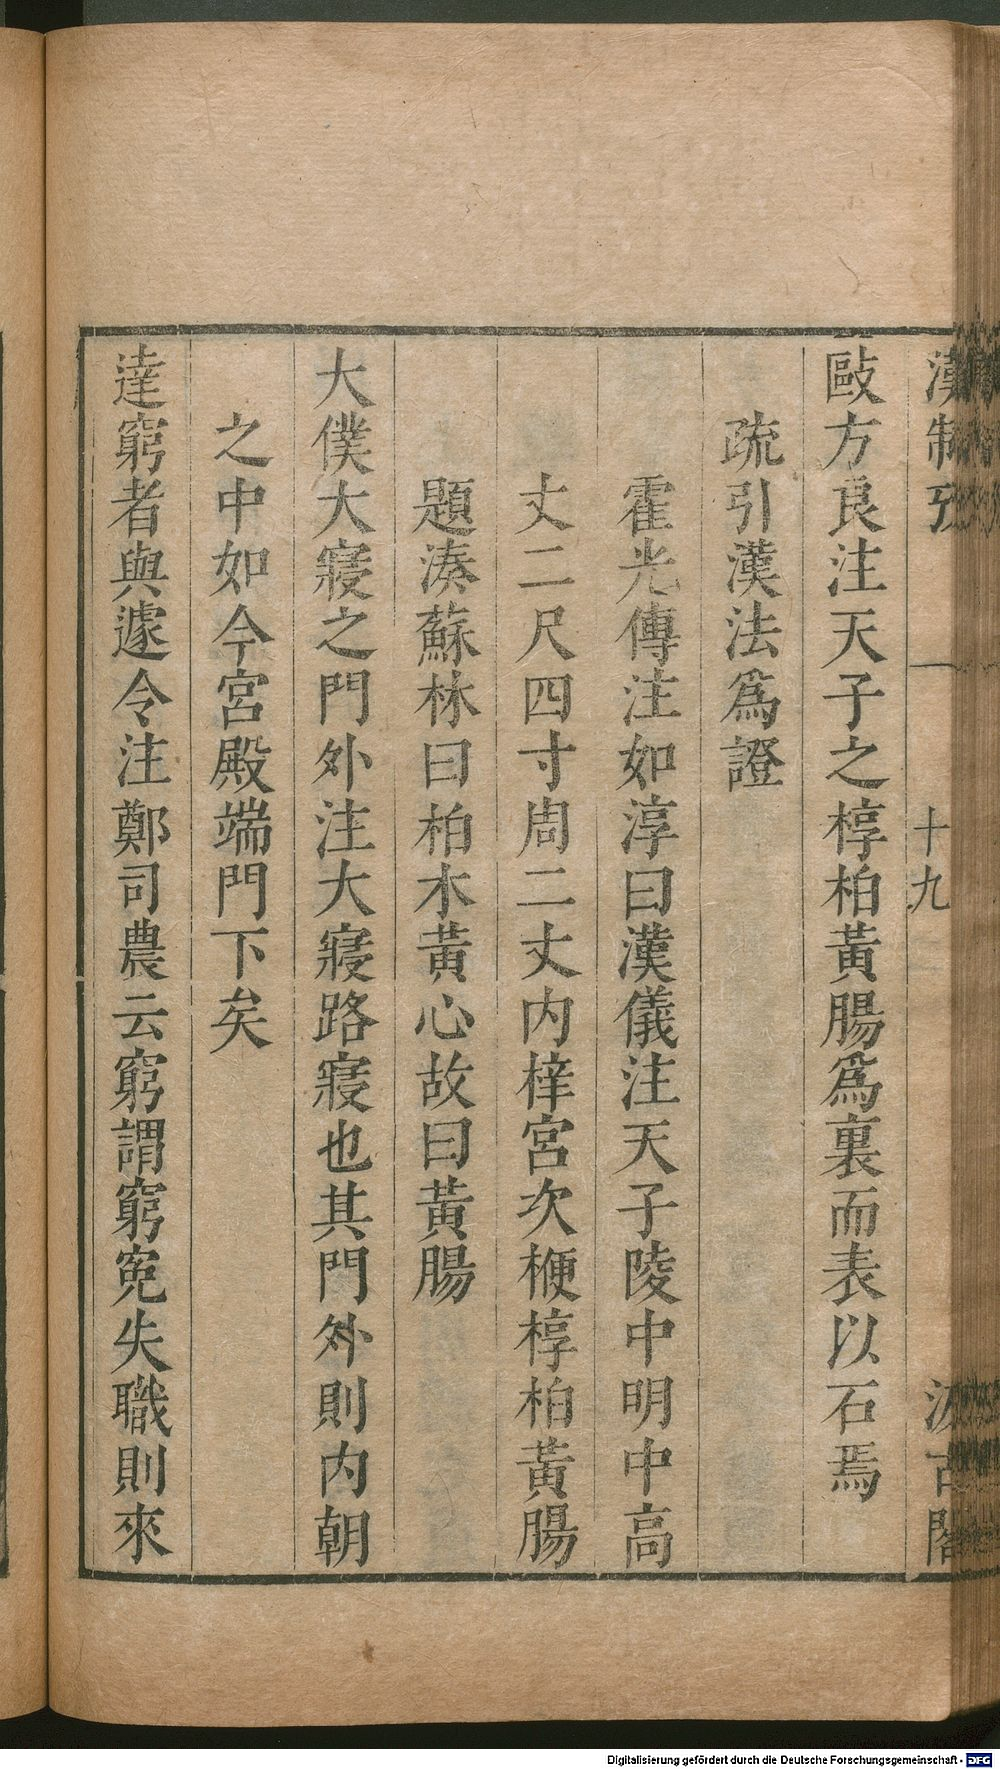 漢制攷
十九
汲古閣
毆方良注天子之椁柏黃腸爲裏而表以石焉
疏引漢法爲證
霍光傳注如淳曰漢儀注天子陵中明中高
丈二尺四寸周二丈内梓宮次楩椁柏黃腸
題湊蘇林曰柏木黃心故曰黃腸
大僕大寢之門外注大寢路寢也其門外則内朝
之中如今宮殿端門下矣
達窮者與遽令注鄭司農云窮謂窮寃失職則來
Digitalisierung gefördert durch die Deutsche Forschungsgemeinschaft - DFG